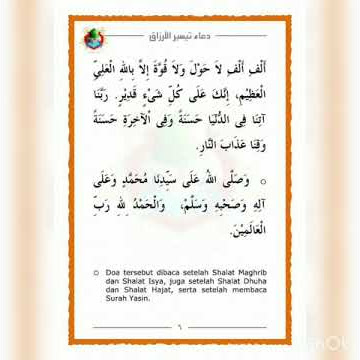 دعاء تيسير الأرزاق
أَلْفِ أَلْفِ لاَ حَوْلَ وَلاَ قُوَّةَ إِلاَّ بِاللهِ الْعَلِيِّ
الْعَظِيْمِ، إِنَّكَ عَلَى كُلِّ شَيْءٍ قَدِيْرٍ. رَبَّنَا
آتِنَا فِى الدُّنْيَا حَسَنَةً وَفِى اْلآخِرَةِ حَسَنَةً
وَقِنَا عَذَابَ النَّارِ.
○ وَصَلَّى اللهُ عَلَى سَيِّدِنَا مُحَمَّدٍ وَعَلَى
آلِهِ وَصَحْبِهِ وَسَلَّمَ، وَالْحَمْدُ لِلهِ رَبِّ
الْعَالَمِيْنَ.
○ Doa tersebut dibaca setelah Shalat Maghrib
dan Shalat Isya, juga setelah Shalat Dhuha
dan Shalat Hajat, serta setelah membaca
Surah Yasin.
٦